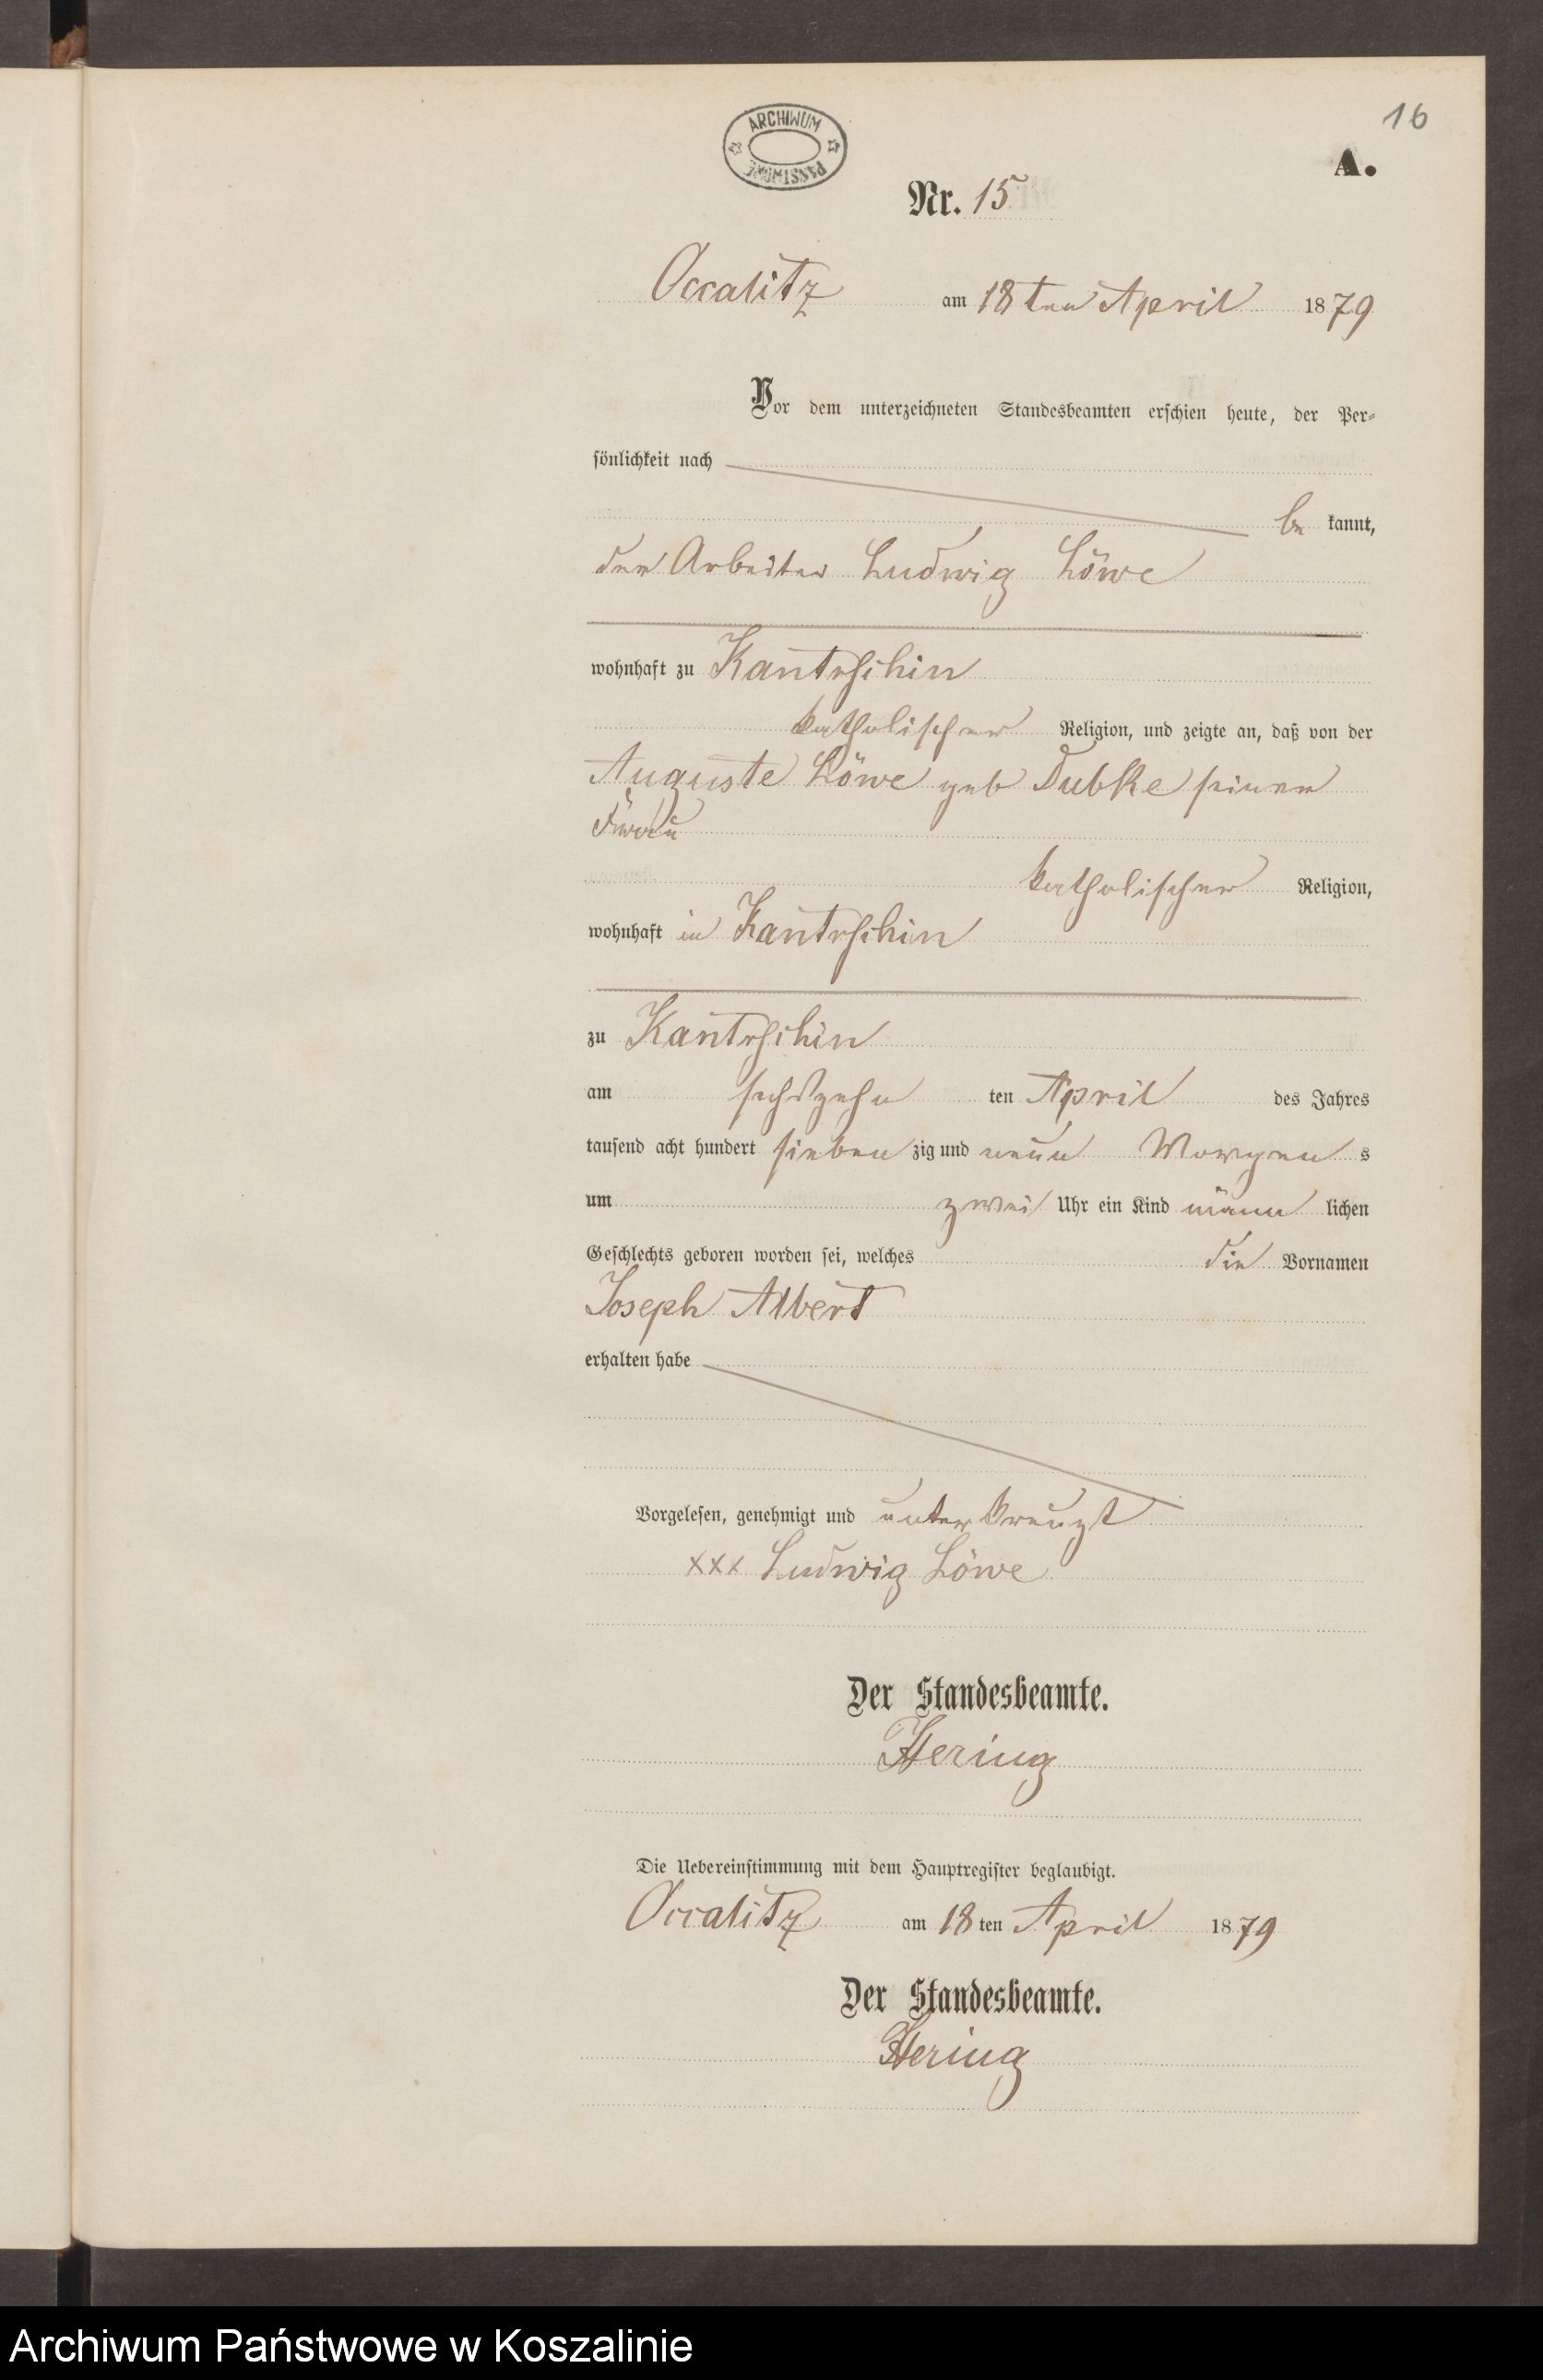 16
ARCHIWUM PAŃSTWOWE
A.
Nr. 15
Occalitz am 18ten April 1879
Vor dem unterzeichneten Standesbeamten erschien heute, der Per-
sönlichkeit nach
be kannt,
der Arbeiter Ludwig Löwe
wohnhaft zu Kantrschin
katholischer Religion, und zeigte an, daß von der
Auguste Löwe geb Dubke seiner
Frau
katholischer Religion,
wohnhaft in Kantrschin
zu Kantrschin
am sechszehn ten April des Jahres
tausend acht hundert sieben zig und neun Morgen s
um zwei Uhr ein Kind männ lichen
Geschlechts geboren worden sei, welches die Vornamen
Joseph Albert
erhalten habe
Vorgelesen, genehmigt und unterkreuzt
xxx Ludwig Löwe
Der Standesbeamte.
Hering
Die Uebereinstimmung mit dem Hauptregister beglaubigt.
Occalitz am 18 ten April 1879
Der Standesbeamte.
Hering
Archiwum Państwowe w Koszalinie